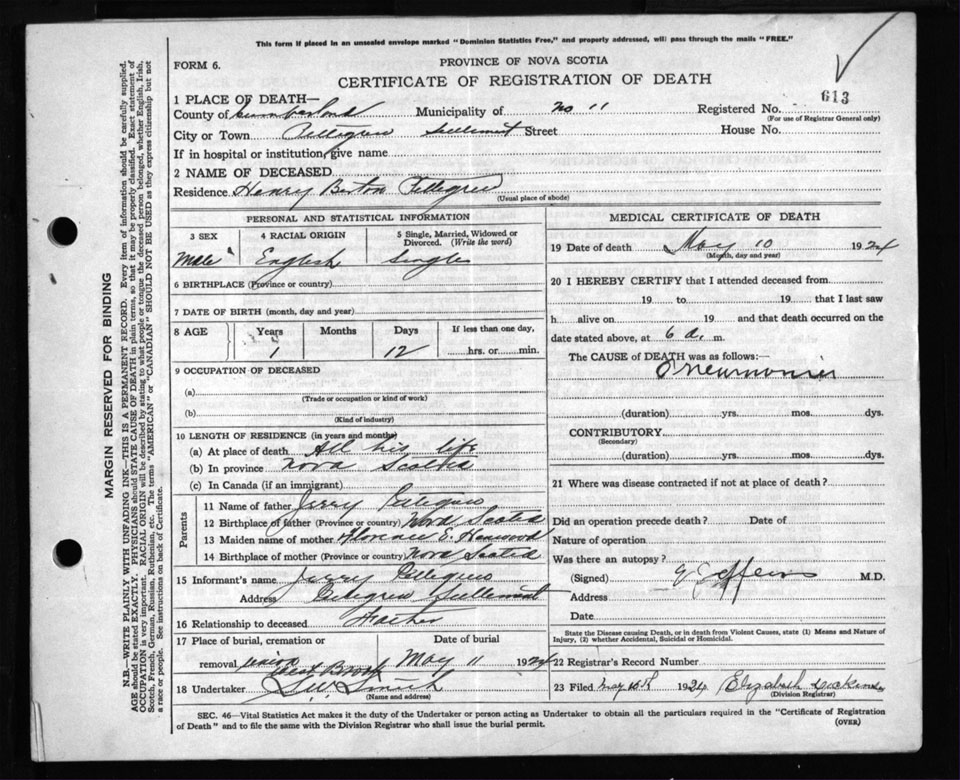 This form if placed in an unsealed envelope marked "Dominion Statistics Free," and properly addressed, will pass through the mails "FREE."
FORM 6.
PROVINCE OF NOVA SCOTIA
CERTIFICATE OF REGISTRATION OF DEATH
613
1 PLACE OF DEATH—
County of Cumberland Municipality of No 11 Registered No.
(For use of Registrar General only)
City or Town Street House No.
If in hospital or institution, give name
2 NAME OF DECEASED
Residence Henry Burton
(Usual place of abode)
PERSONAL AND STATISTICAL INFORMATION
3 SEX 4 RACIAL ORIGIN 5 Single, Married, Widowed or Divorced. (Write the word)
Male English Single
6 BIRTHPLACE (Province or country)
7 DATE OF BIRTH (month, day and year)
8 AGE Years Months Days If less than one day,
1 12 hrs. or min.
9 OCCUPATION OF DECEASED
(a)
(Trade or occupation or kind of work)
(b)
(Kind of industry)
10 LENGTH OF RESIDENCE (in years and months)
(a) At place of death All his life
(b) In province Nova Scotia
(c) In Canada (if an immigrant)
Parents
11 Name of father Jerry
12 Birthplace of father (Province or country) Nova Scotia
13 Maiden name of mother Florence E.
14 Birthplace of mother (Province or country) Nova Scotia
15 Informant's name Jerry
Address
16 Relationship to deceased Father
17 Place of burial, cremation or removal Date of burial
West Brook May 11 1924
18 Undertaker Smith
(Name and address)
MEDICAL CERTIFICATE OF DEATH
19 Date of death May 10 1924
(Month, day and year)
20 I HEREBY CERTIFY that I attended deceased from
19 to 19 that I last saw
h alive on 19 and that death occurred on the
date stated above, at 6 a. m.
The CAUSE of DEATH was as follows:—
Pneumonia
(duration) yrs. mos. dys.
CONTRIBUTORY
(Secondary)
(duration) yrs. mos. dys.
21 Where was disease contracted if not at place of death?
Did an operation precede death? Date of
Nature of operation
Was there an autopsy?
(Signed) M.D.
Address
Date
State the Disease causing Death, or in death from Violent Causes, state (1) Means and Nature of Injury, (2) whether Accidental, Suicidal or Homicidal.
22 Registrar's Record Number
23 Filed May 1924 Elizabeth
(Division Registrar)
SEC. 46—Vital Statistics Act makes it the duty of the Undertaker or person acting as Undertaker to obtain all the particulars required in the "Certificate of Registration
of Death" and to file the same with the Division Registrar who shall issue the burial permit.
(OVER)
MARGIN RESERVED FOR BINDING
N.B.—WRITE PLAINLY WITH UNFADING INK—THIS IS A PERMANENT RECORD. Every item of information should be carefully supplied.
AGE should be stated EXACTLY. PHYSICIANS should STATE CAUSE OF DEATH in plain terms, so that it may be properly classified. Exact statement of
OCCUPATION is very important. RACIAL ORIGIN will be described by stating to what people or tongue the deceased person belonged, whether English, Irish,
Scotch, French, German, Russian, Ruthenian, etc. The terms "AMERICAN" or "CANADIAN" SHOULD NOT BE USED as they express citizenship but not
a race or people. See instructions on back of Certificate.